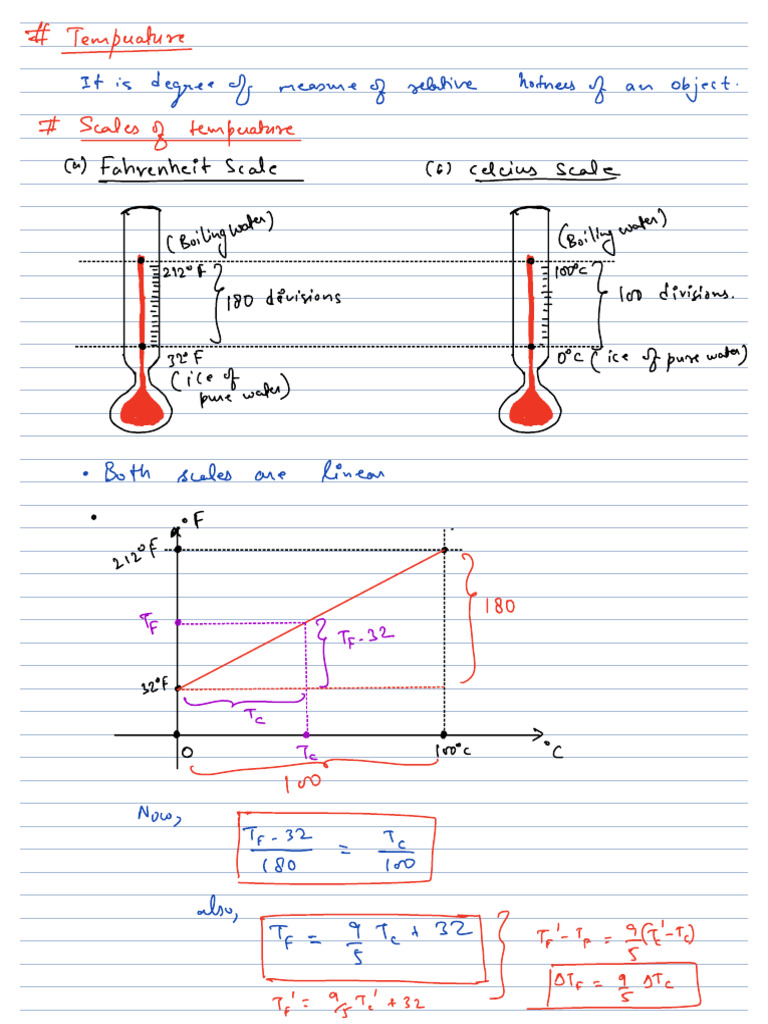 # Tempuature
It is degree of measure of relative hotness of an object.
# Scales of tempuature
(a) Fahrenheit Scale
(b) Celcius Scale
(Boiling water)
212°F
180 divisions
32°F
(ice of pure water)
(Boiling water)
100°C
100 divisions.
0°C (ice of pure water)
• Both scales are linear
•
°F
212°F
T_F
32°F
T_F - 32
180
T_C
0
T_C
100°C
°C
100
Now,
T_F - 32 / 180 = T_C / 100
also,
T_F = 9/5 T_C + 32
T_F' = 9/5 T_C' + 32
T_F' - T_F = 9/5 (T_C' - T_C)
ΔT_F = 9/5 ΔT_C